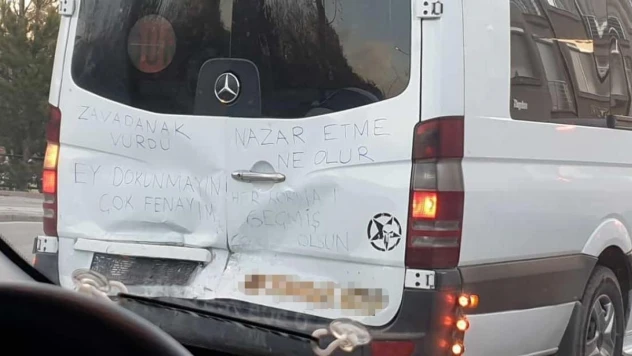 ZAVADANAK
VURDU
NAZAR ETME
NE OLUR
EY DOKUNMAYIN
ÇOK FENAYIM
GEÇMİŞ
OLSUN